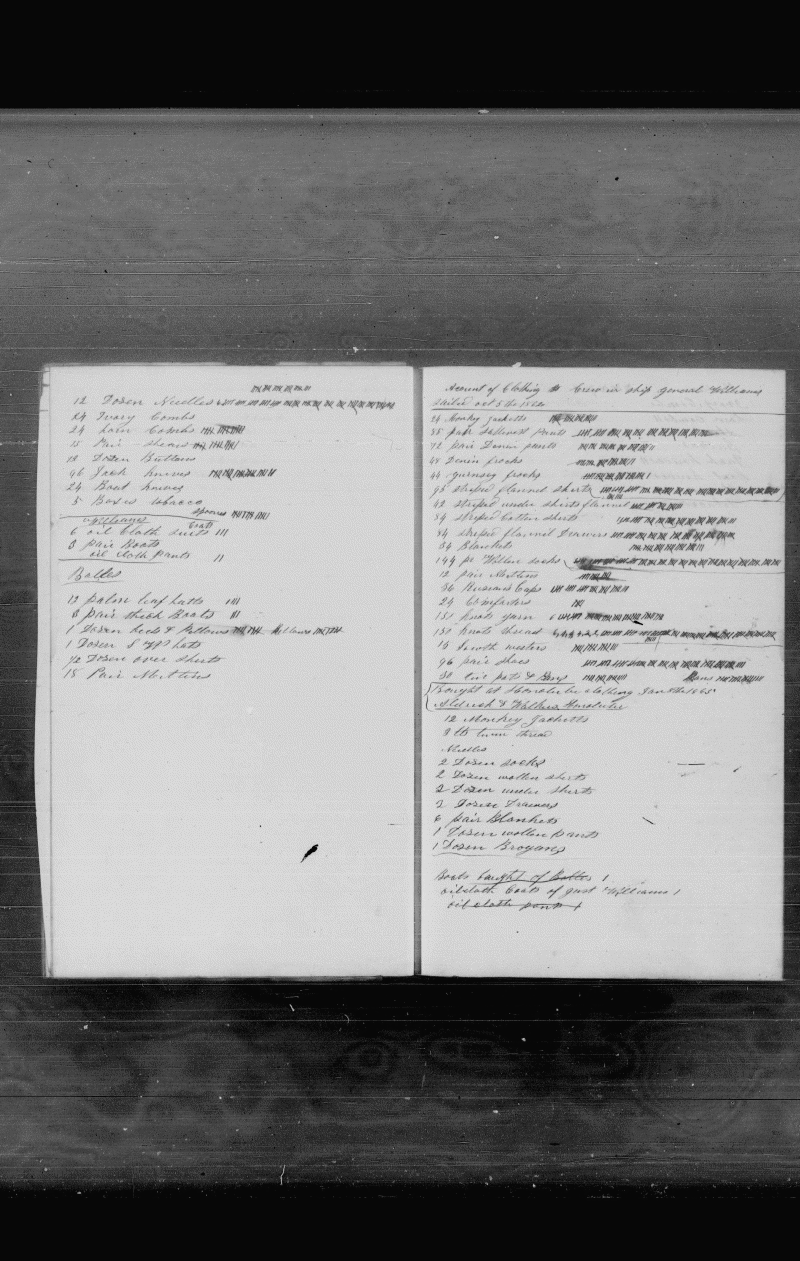 12 Dozen Needles
24 Ivory Combs
24 Combs
15 Pair shears
12 Dozen Buttons
96 Jack knives
24 Boat knives
5 Boxes tobacco
spoons
Williams
coats
6 oil Cloth suits III
8 pair Boots
oil cloth Pants II
Balles
12 palm leaf hatts IIII
8 pair thick Boots III
1 Dozen beds & Pillows Pillows
1 Dozen hats
72 Dozen over shirts
18 Pair Mittins
Account of Clothing Crew in ship general Williams
Sailed oct 5 the
24 Monkey jacketts
pair pants
72 pair Denim pants
48 Denim frocks
44 guernsey frocks
96 striped flannel shirts
42 striped under shirts flannel
84 striped Cotten shirts
84 striped flannel Drawers
84 Blankets
144 pr Wollen socks
12 pair Mittins
36 Russian Caps
24 Comforters
150 knots yarn
150 knots thread
15 south westers
96 pair shoes
30 tin pots & Pans
Bought at Honolulu clothing Jan 1865
Aldrich & Walker Honolulu
12 Monkey Jacketts
8 lb twine thread
Needles
2 Dozen socks
2 Dozen wollen shirts
2 Dozen under shirts
2 Dozen Drawers
6 pair Blankets
1 Dozen wollen Pants
1 Dozen Brogans
Boots bought of Balles I
oilcloth Coats of Williams I
oil cloth pants I